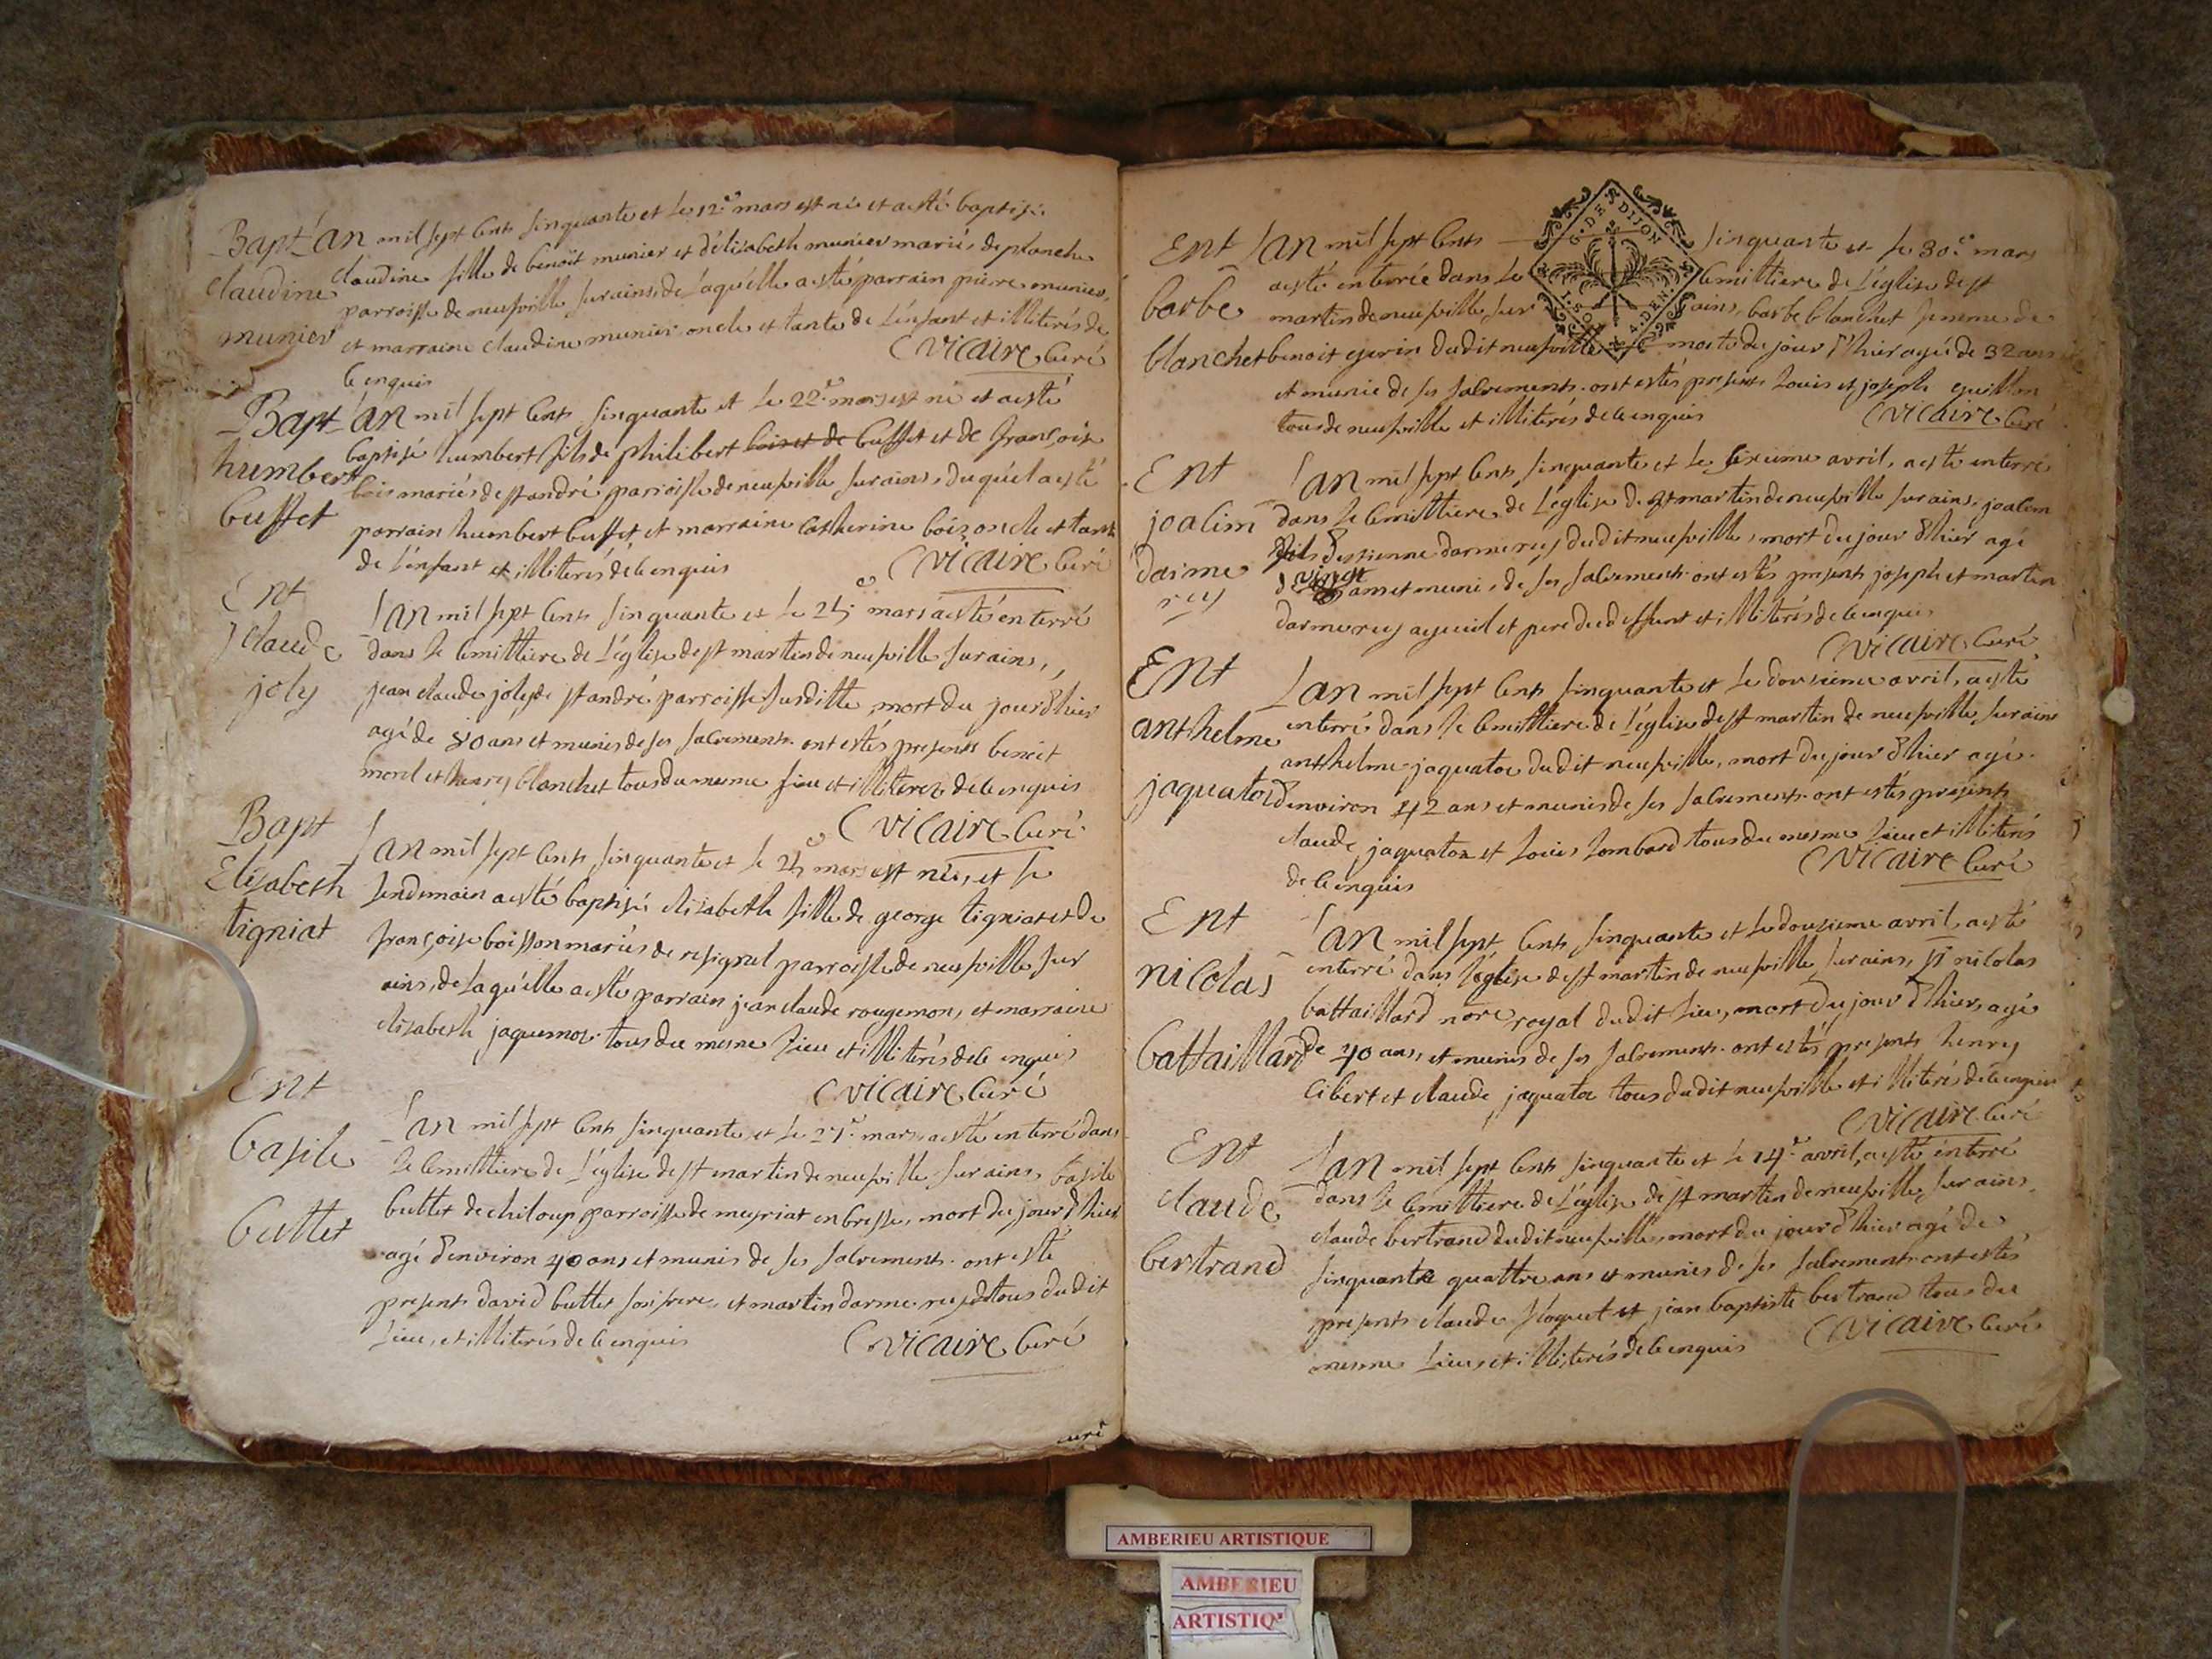 Bapt
claudine
munier
L'an mil sept cents sinquante et le 12e mars est née et a esté baptisée
claudine fille de benoit munier et d'élisabeth munier mariés de planche
parroisse de neufville sur ains, de laquelle a esté parrain pierre munier,
et marraine claudine munier oncle et tante de l'enfant et illiterés de
ce enquis
Vicaire Curé
Bapt
humbert
buffet
L'an mil sept cents sinquante et le 22e mars est né et a esté
baptisé humbert fils de philibert buffet et de françoise
bois mariés de st andré parroisse de neufville sur ains, duquel a esté
parrain humbert buffet et marraine catherine bois oncle et tante
de l'enfant et illiterés de ce enquis
Vicaire Curé
Ent
j claude
joly
L'an mil sept cents sinquante et le mars a esté enterré
dans le cemittiere de l'église de st martin de neufville sur ains,
jean claude joly de st andré parroisse susditte mort du jour d'hier
agé de ans et munis de ses sacrements. ont estés presents benoit
morel et henry blanchet tous du mesme lieu et illiterez de ce enquis
Vicaire Curé
Bapt
Elisabeth
tigniat
L'an mil sept cents sinquante et le mars est née, et le
lendemain a esté baptisée elisabeth fille de george tigniat et de
françoise boisson mariés de resignel parroisse de neufville sur
ains, de laquelle a esté parrain jean claude rougemon, et marraine
elisabeth jaquemoz tous du mesme lieu et illiterés de ce enquis
Vicaire Curé
Ent
basile
buttet
L'an mil sept cents sinquante et le mars a esté enterré dans
le cemittiere de l'église de st martin de neufville sur ains, basile
buttet de chiloup parroisse de meyriat en bresse, mort du jour d'hier
agé d'environ 40 ans et munis de ses sacrements. ont esté
presents david buttet son frere, et martin darmerey tous dudit
lieu, et illiterés de ce enquis
Vicaire Curé
curé
Ent
barbe
blanchet
G. DE DIJON
L'an mil sept cents sinquante et le 30e mars
a esté enterrée dans le cemittiere de l'église de st
martin de neufville sur ains, barbe blanchet femme de
benoit dudit neufville morte du jour d'hier agée de 32 ans
et munie de ses sacrements. ont estés presents Louis et joseph
tous de neufville et illiterés de ce enquis
Vicaire Curé
Ent
joacim
darme
rey
L'an mil sept cents sinquante et le sixieme avril, a esté enterré
dans le cemittiere de l'église de st martin de neufville sur ains, joacim
fils d'estienne darmerey dudit neufville, mort du jour d'hier agé
de ans et muni de ses sacrements. ont estés presents joseph et martin
darmerey ayeul et pere du deffunt et illiterés de ce enquis
Vicaire Curé
Ent
anthelme
jaquatoz
L'an mil sept cents sinquante et le douzieme avril, a esté
enterré dans le cemittiere de l'église de st martin de neufville sur ains
anthelme jaquatoz dudit neufville, mort du jour d'hier agé
d'environ 42 ans et munis de ses sacrements. ont estés presents
claude jaquatoz et Louis Lombard tous du mesme lieu et illiterés
de ce enquis
Vicaire Curé
Ent
nicolas
battaillard
L'an mil sept cents sinquante et le douzieme avril, a esté
enterré dans l'église de st martin de neufville sur ains, sr nicolas
battaillard nore royal dudit lieu, mort du jour d'hier, agé
de 40 ans, et munis de ses sacrements. ont estés presents henry
cibert et claude jaquatoz tous dudit neufville et illiterés de ce enquis
Vicaire Curé
Ent
claude
bertrand
L'an mil sept cents sinquante et le 14e avril, a esté enterré
dans le cemittiere de l'église de st martin de neufville sur ains
claude bertrand dudit neufville, mort du jour d'hier agé de
sinquante quattre ans et munis de ses sacrements ont estés
presents claude et jean baptiste bertrand tous du
mesme lieu, et illiterés de ce enquis
Vicaire Curé
AMBERIEU ARTISTIQUE
AMBERIEU
ARTISTIQ